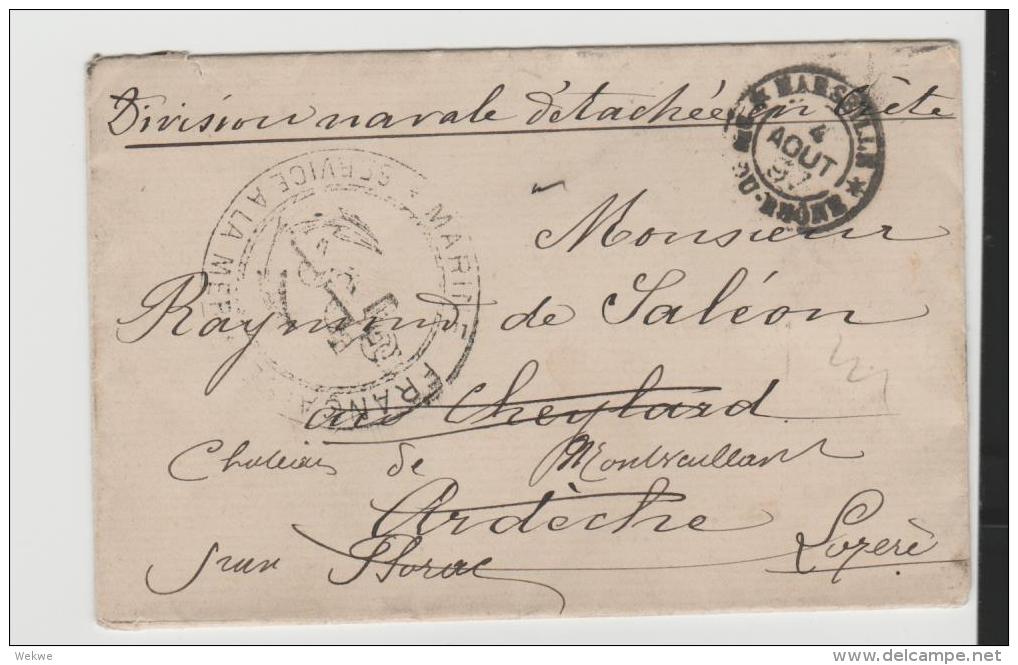 Division navale détachée en Crète
MARSEILLE
4
AOUT
97
BOUCHES-DU-RHONE
MARINE FRANÇAISE
SERVICE A LA MER
Monsieur
Raymond de Saléon
au Cheylard
Chateau de Montvaillant
Ardèche
par Florac Lozère
Wekwe
delcampe.net